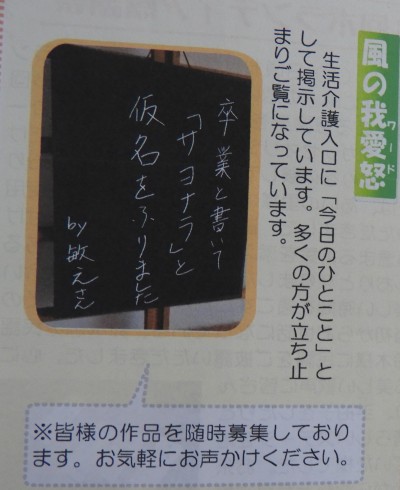 風の我愛怒
ワード
生活介護入口に「今日のひとこと」と
して掲示しています。多くの方が立ち止
まりご覧になっています。
卒業と書いて
「サヨナラ」と
仮名をふりました
by敏えさん
※皆様の作品を随時募集しており
ます。お気軽にお声かけください。